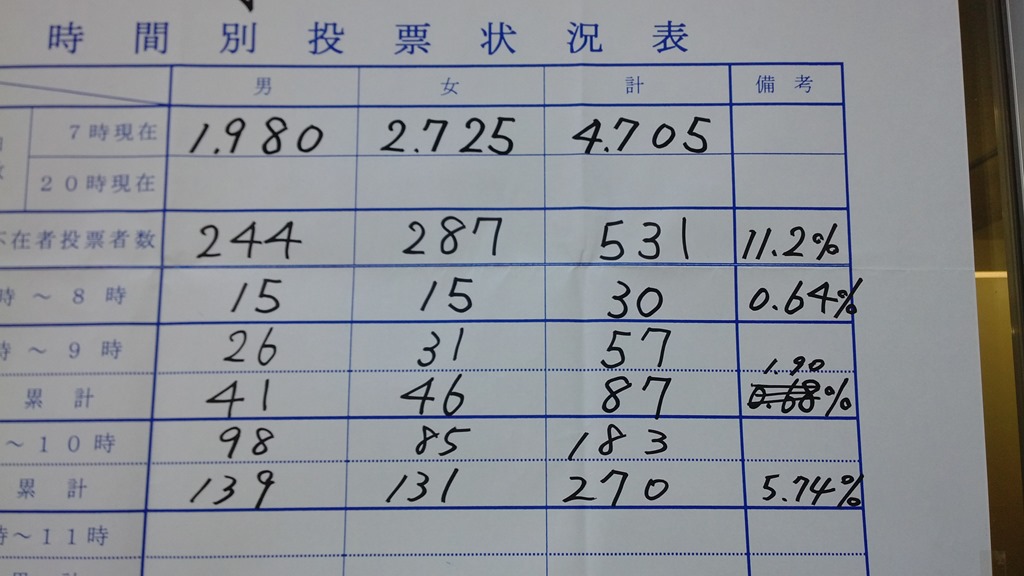 時間別投票状況表
男 女 計 備考
7時現在 1.980 2.725 4.705
20時現在
不在者投票者数 244 287 531 11.2%
時～8時 15 15 30 0.64%
時～9時 26 31 57
1.90
累計 41 46 87 0.68%
～10時 98 85 183
累計 139 131 270 5.74%
時～11時
累計